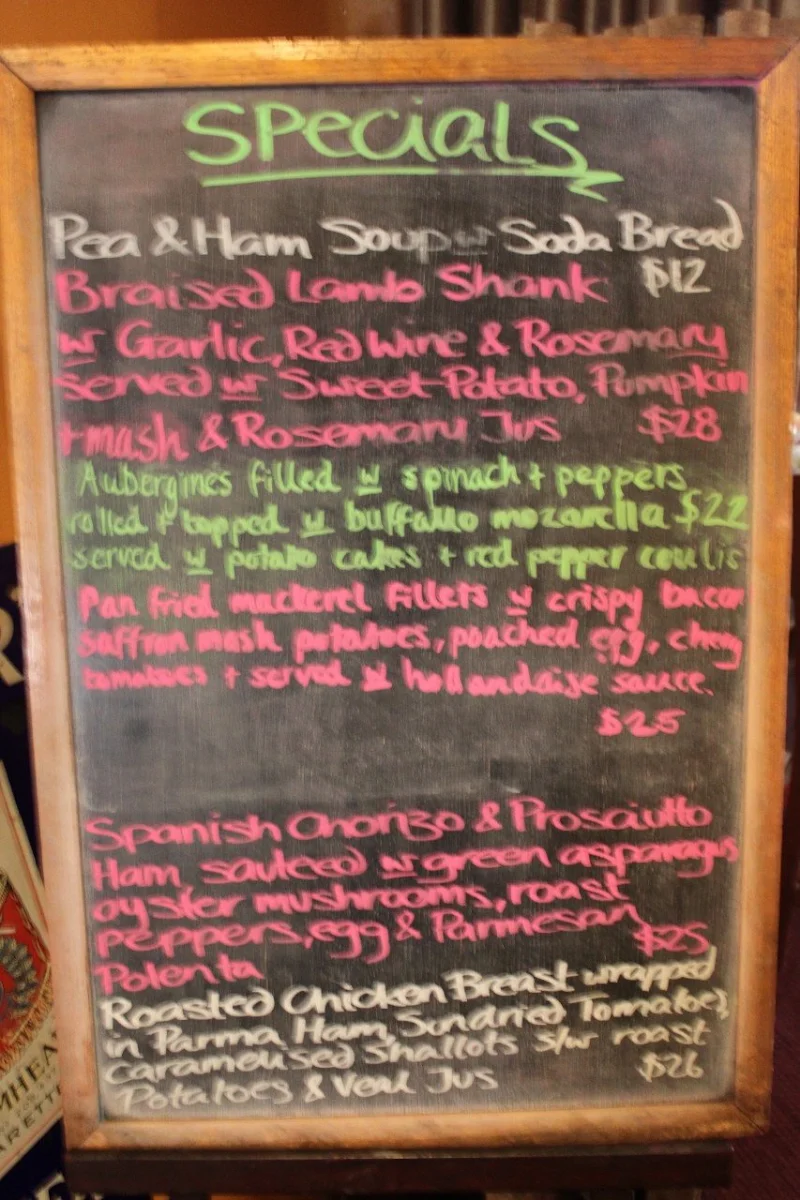 Specials
Pea & Ham Soup w Soda Bread
$12
Braised Lamb Shank
w Garlic, Red Wine & Rosemary
served w Sweet Potato, Pumpkin
+ mash & Rosemary Jus $28
Aubergines filled w spinach + peppers
rolled + topped w buffallo mozarella $22
served w potato cakes + red pepper coulis
Pan fried mackerel fillets w crispy bacon
saffron mash potatoes, poached egg, cherry
tomatoes + served w hollandaise sauce.
$25
Spanish Chorizo & Prosciutto
Ham, sauteed w green asparagus
oyster mushrooms, roast
peppers, egg & Parmesan
$25
Polenta
Roasted Chicken Breast wrapped
in Parma Ham, Sundried Tomatoes,
caramelised Shallots s/w roast
$26
Potatoes & Veal Jus